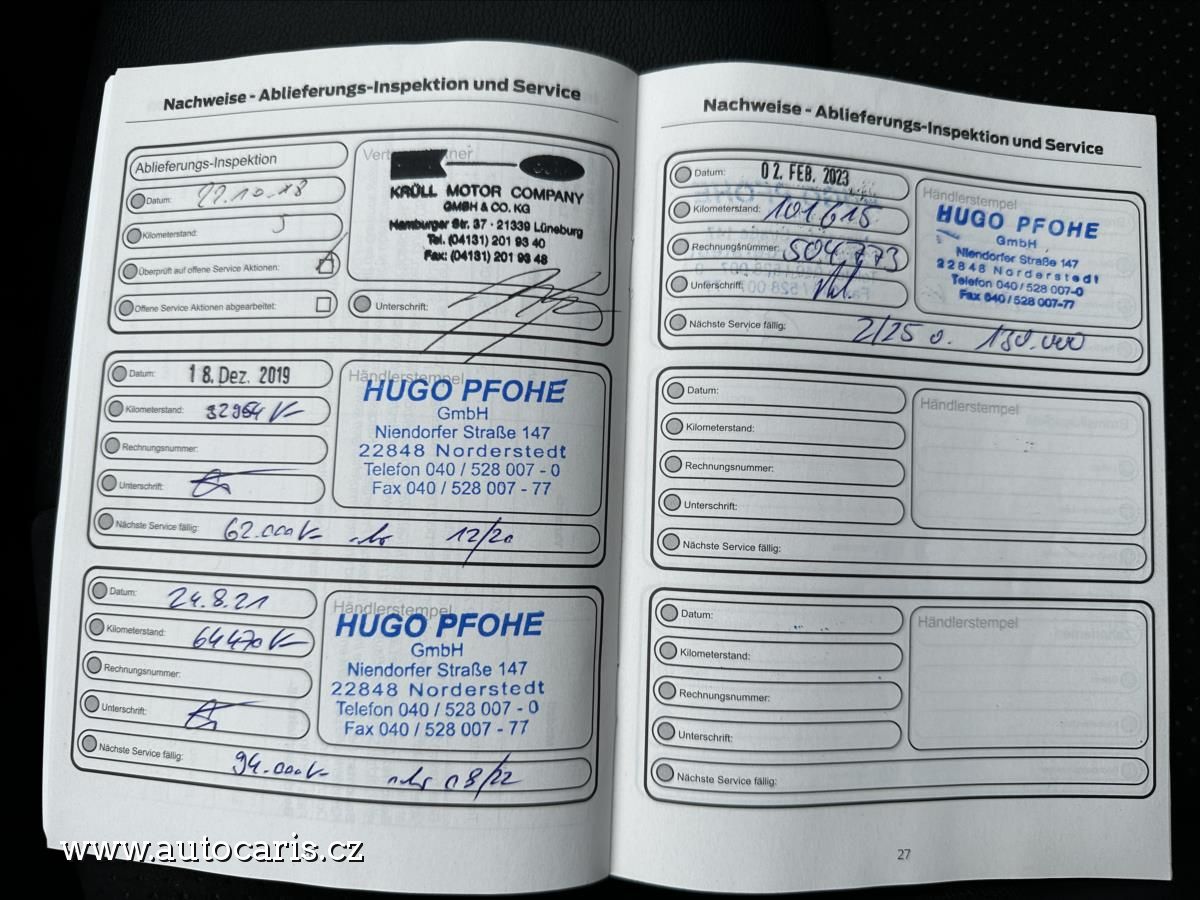 Nachweise - Ablieferungs-Inspektion und Service
Ablieferungs-Inspektion
Datum: 22.10.18
Kilometerstand: 5
Überprüft auf offene Service Aktionen:
Offene Service Aktionen abgearbeitet:
KRÜLL MOTOR COMPANY
GMBH & CO. KG
Hamburger Str. 37 - 21339 Lüneburg
Tel. (04131) 201 93 40
Fax: (04131) 201 93 48
Unterschrift:
Datum: 18. Dez. 2019
Kilometerstand: 32964
Rechnungsnummer:
Unterschrift:
Händlerstempel
HUGO PFOHE
GmbH
Niendorfer Straße 147
22848 Norderstedt
Telefon 040 / 528 007 - 0
Fax 040 / 528 007 - 77
Nächste Service fällig: 62.000 12/20
Datum: 24.8.21
Kilometerstand: 64470
Rechnungsnummer:
Unterschrift:
Händlerstempel
HUGO PFOHE
GmbH
Niendorfer Straße 147
22848 Norderstedt
Telefon 040 / 528 007 - 0
Fax 040 / 528 007 - 77
Nächste Service fällig: 94.000 08/22
Nachweise - Ablieferungs-Inspektion und Service
Datum: 02. FEB. 2023
Kilometerstand: 101615
Rechnungsnummer: 504773
Unterschrift:
Händlerstempel
HUGO PFOHE
GmbH
Niendorfer Straße 147
22848 Norderstedt
Telefon 040 / 528 007-0
Fax 040 / 528 007-77
Nächste Service fällig: 2/25 o. 130.000
Datum:
Kilometerstand:
Rechnungsnummer:
Unterschrift:
Händlerstempel
Nächste Service fällig:
Datum:
Kilometerstand:
Rechnungsnummer:
Unterschrift:
Händlerstempel
Nächste Service fällig:
27
www.autocaris.cz